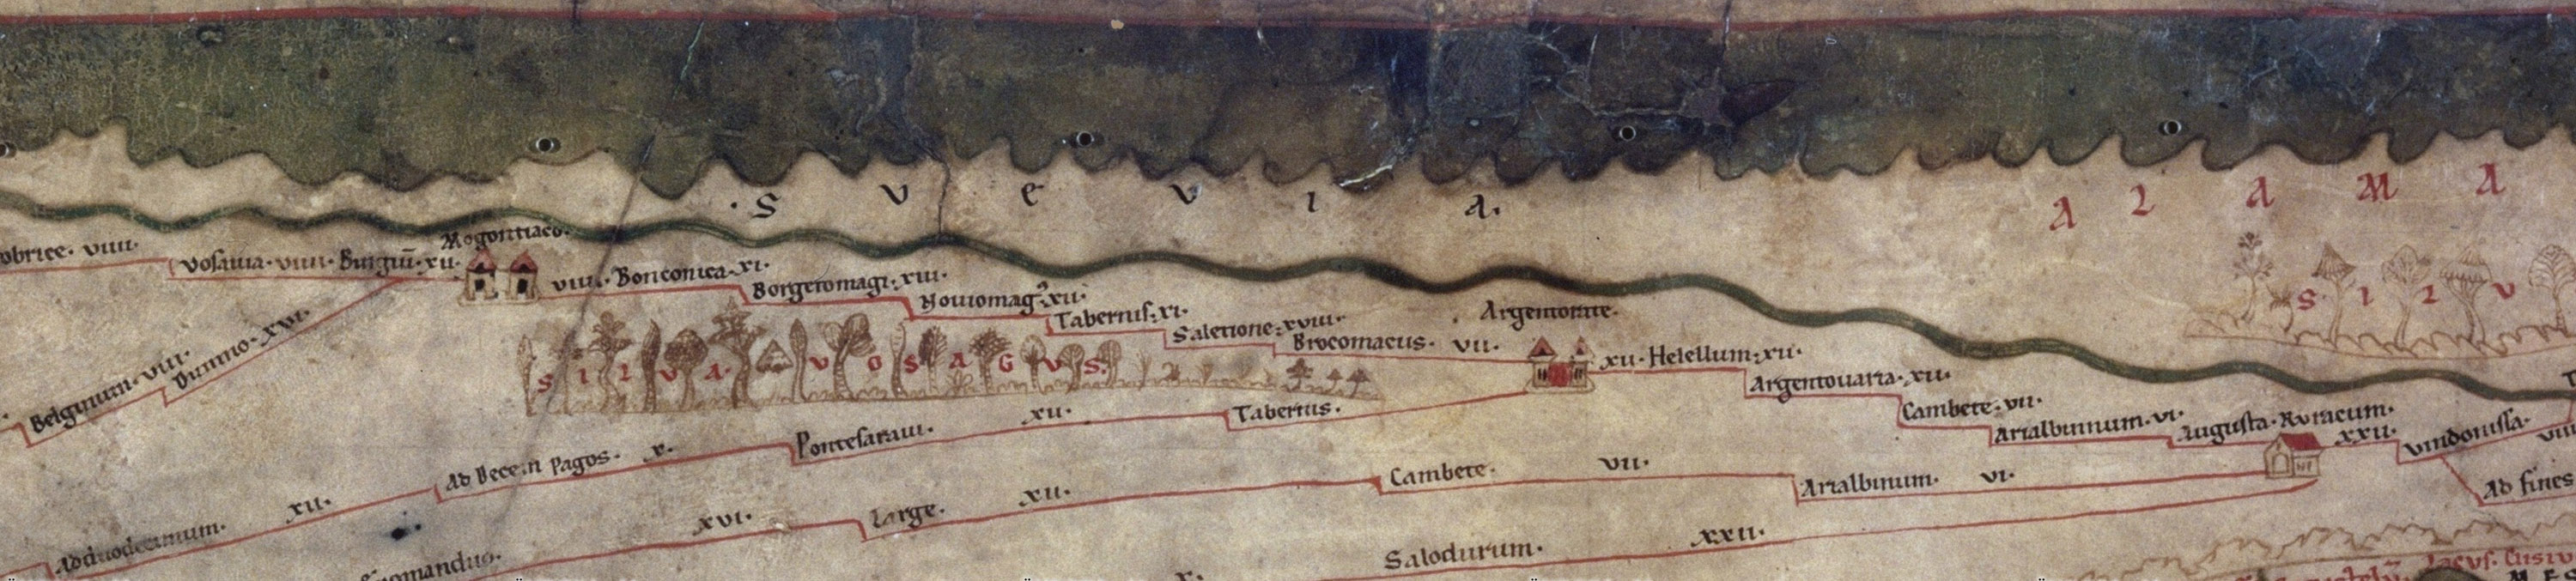 · S V E V I A ·
A L A M A
Mogontiaco.
obrice. VIIII.
Vosavia. VIIII. Burgiū. XII.
VIIII. Bonconica. XI.
Borgetomagi. XIII.
Noviomag⁹. XII.
Tabernis. XI.
Saletione. XVIII.
Brocomacus. VII.
Argentorate.
XII. Helellum. XII.
Argentovaria. XII.
Cambete. VII.
Artalbinnum. VI.
Augusta Ruracum.
XXII.
Vindonissa.
VIII
Ad fines
S I L V
S I L V A. V O S A G V S.
Belginum. VIII.
Dumno. XVI.
Ad duodecimum. XII.
Ad Decem pagos. X.
Pontesaravi. XII. Tabernis.
omandus. XVI.
Large. XII.
Cambete. VII.
Artalbinum. VI.
X.
Salodurum. XXII.
lacus.